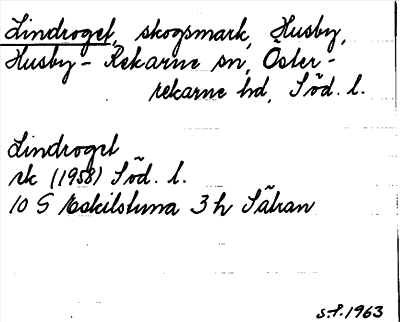 Lindroget, skogsmark, Husby,
Husby-Rekarne sn, Öster-
rekarne hd, Söd. l.
Lindroget
rk (1958) Söd. l.
10 G Eskilstuna 3 h Sätran
S.P. 1963